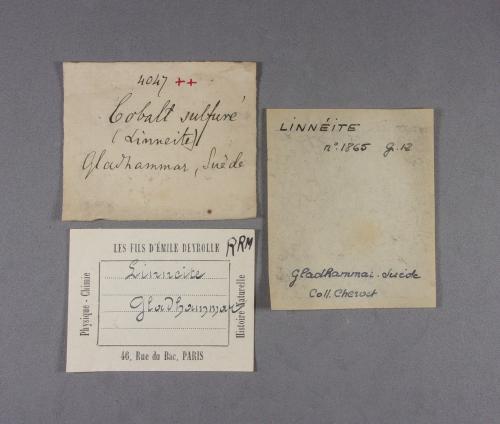 4047 ++
Cobalt sulfuré
(Linneite)
Gladhammar, Suède
LINNÉITE
n°. 1865 g. 12
Gladhammar. Suède
Coll. Chervet
LES FILS D'ÉMILE DEYROLLE
RRM
Physique - Chimie
Linneite
Gladhammar
Histoire Naturelle
46, Rue du Bac, PARIS